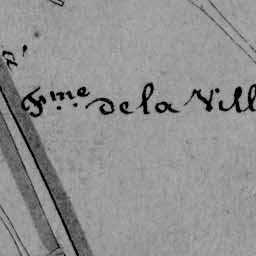 Fme de la Vill